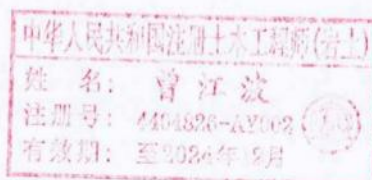 中华人民共和国注册土木工程师(岩土)
姓 名: 曾江波
注册号: 4404826-AY002
有效期: 至2024年12月